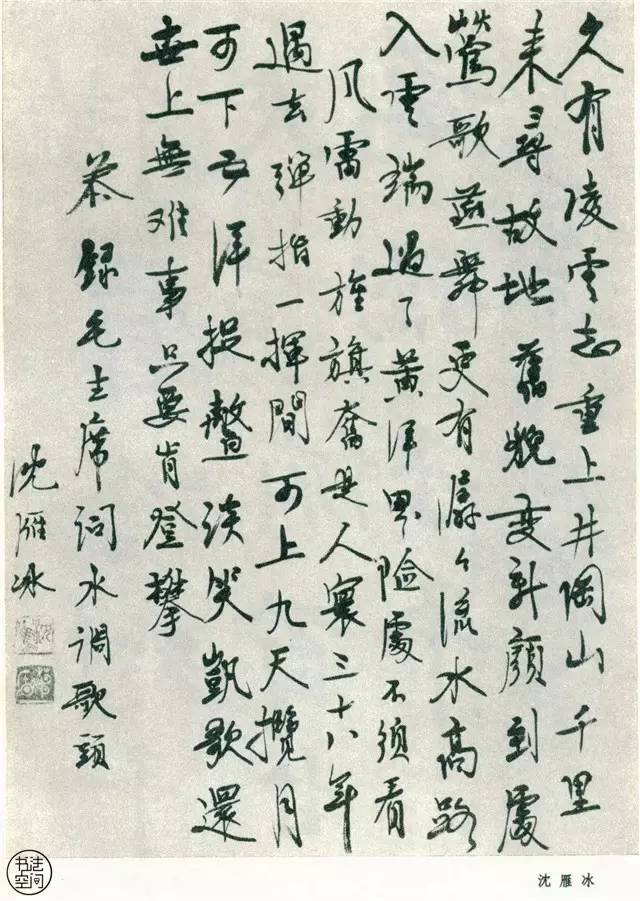 久有凌雲志重上井岡山千里
来尋故地舊貌变新顔到處
鶯歌燕舞更有潺々流水高路
入雲端過了黄洋界險處不須看
风雷動旌旗奮是人寰三十八年
過去彈指一揮間可上九天攬月
可下五洋捉鱉談笑凱歌還
世上無难事只要肯登攀
恭録毛主席词水调歌頭
沈雁冰
沈雁冰
书法
空间